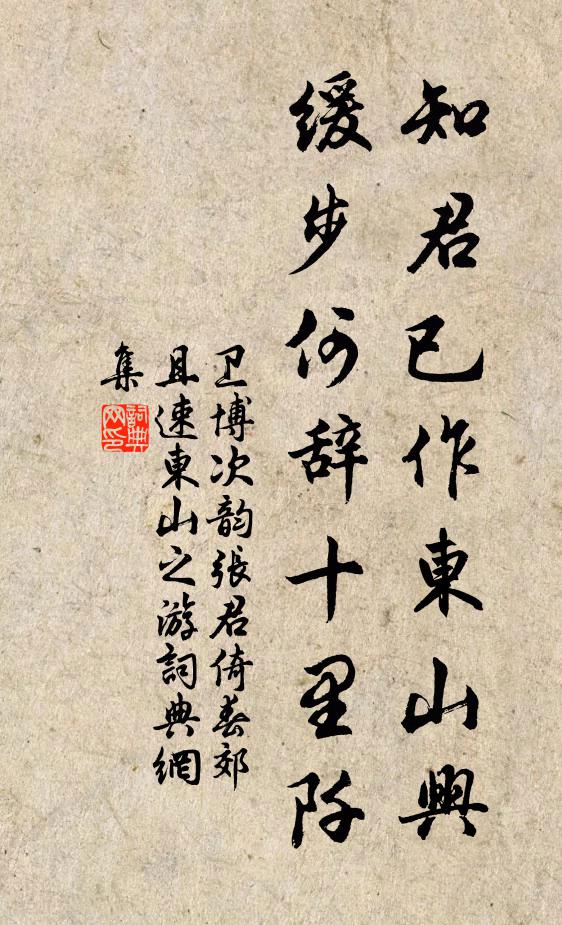 知君已作東山興
缓步何辞十里阡
卫博次韵張君倚春郊
且速東山之游詞典網
集
詞典
网印